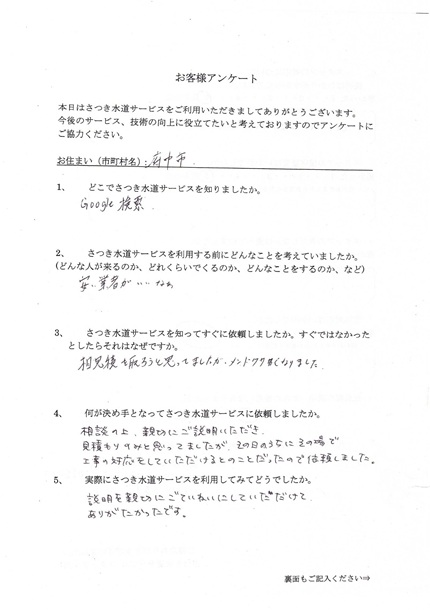 お客様アンケート
本日はさつき水道サービスをご利用いただきましてありがとうございます。
今後のサービス、技術の向上に役立てたいと考えておりますのでアンケートに
ご協力ください。
お住まい（市町村名）：府中市
1、 どこでさつき水道サービスを知りましたか。
Google 検索
2、 さつき水道サービスを利用する前にどんなことを考えていましたか。
（どんな人が来るのか、どれくらいでくるのか、どんなことをするのか、など）
安い業者がいいなぁ
3、 さつき水道サービスを知ってすぐに依頼しましたか。すぐではなかった
としたらそれはなぜですか。
相見積を取ろうと思ってましたが、メンドウクサくなりました
4、 何が決め手となってさつき水道サービスに依頼しましたか。
相談の上、親切にご説明いただき、
見積もりのみと思ってましたが、その日のうちにその場で
工事の対応をしていただけるとのことだったので依頼しました。
5、 実際にさつき水道サービスを利用してみてどうでしたか。
説明を親切にごていねいにしていただけて
ありがたかったです。
裏面もご記入ください⇒